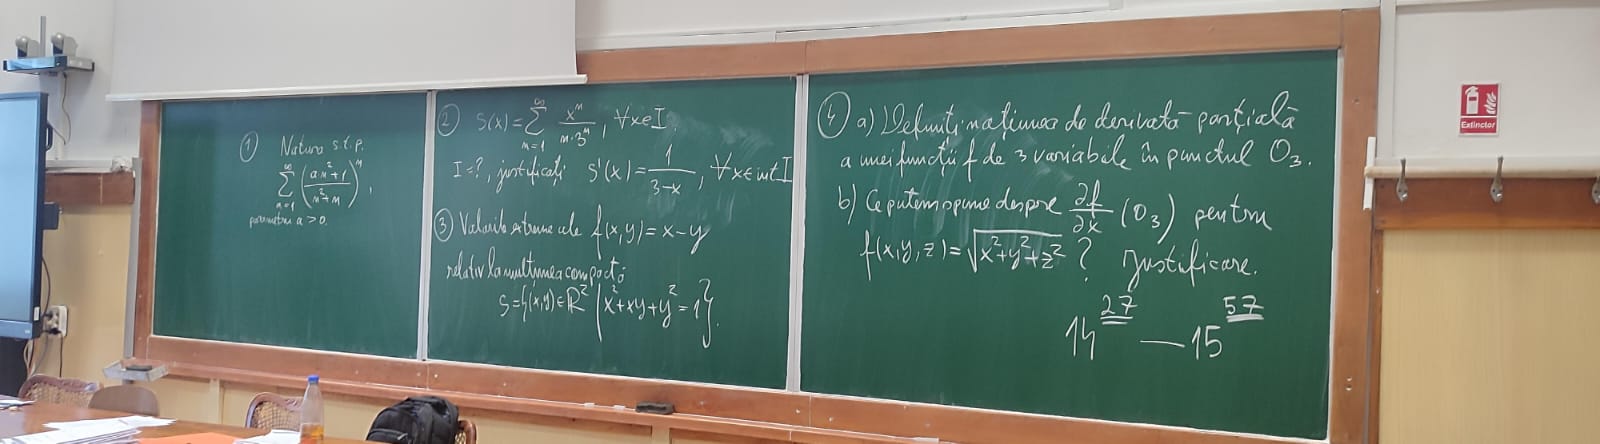 ① Natura s.t.p.
∞
∑ ((an²+1)/(n²+n))ⁿ,
n=1
parametru a > 0.
② S(x) = ∑_{n=1}^{∞} xⁿ/(n·3ⁿ), ∀x∈I.
I=?, justificați S'(x) = 1/(3-x), ∀x∈int I
③ Valorile extreme ale f(x,y) = x-y
relativ la mulțimea compactă
S={(x,y)∈ℝ² | x²+xy+y² = 1}.
④ a) Definiți noțiunea de derivată parțială
a unei funcții f de 3 variabile în punctul O₃.
b) Ce putem spune despre ∂f/∂x (O₃) pentru
f(x,y,z) = √(x²+y²+z²) ? Justificare.
14²⁷ — 15⁵⁷
Extinctor